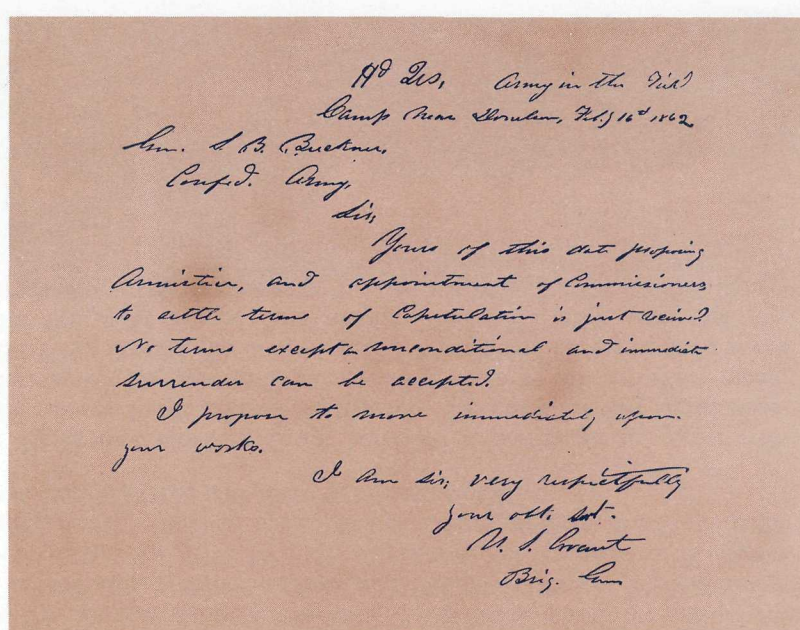 Hd Qrs, Army in the Field
Camp near Donelson, Feby 16th 1862
Gen. S. B. Buckner,
Confed. Army,
Sir,
Yours of this date proposing
Armistice, and appointment of Commissioners
to settle terms of Capitulation is just received.
No terms except an unconditional and immediate
surrender can be accepted.
I propose to move immediately upon
your works.
I am sir; very respectfully
your obt. svt.
U. S. Grant
Brig. Gen